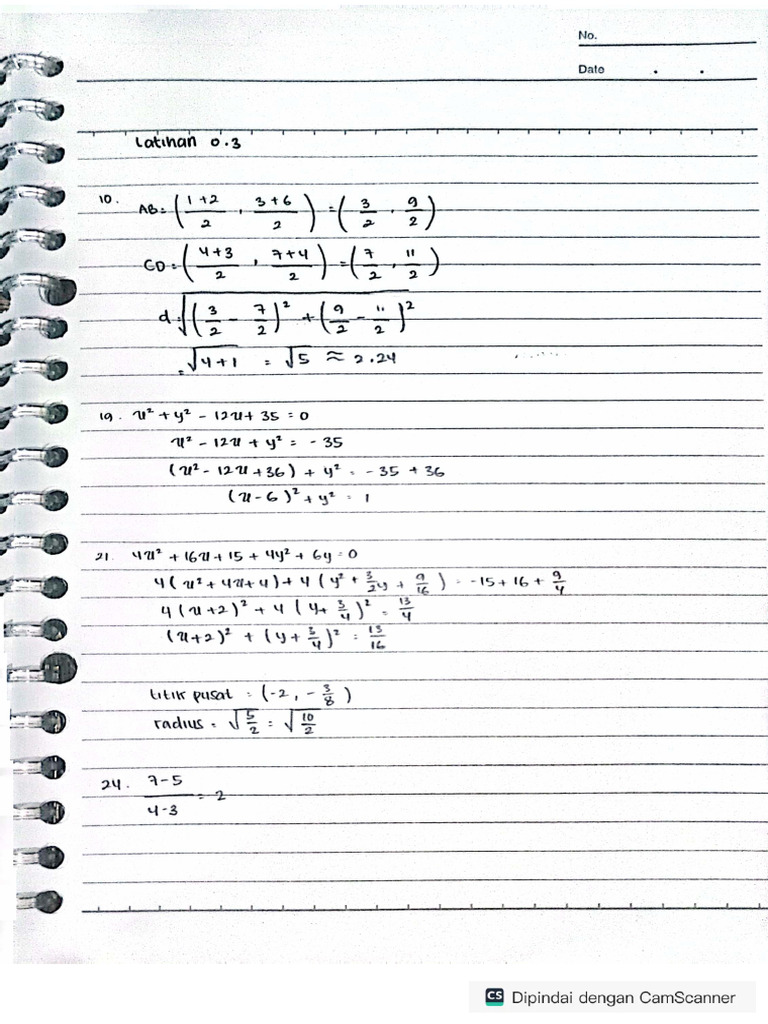 No.
Date . .
Latihan 0.3
10. AB = ( (1+2)/2 , (3+6)/2 ) = ( 3/2 , 9/2 )
CD = ( (4+3)/2 , (7+4)/2 ) = ( 7/2 , 11/2 )
d = √( (3/2 - 7/2)² + (9/2 - 11/2)² )
= √(4+1) = √5 ≈ 2.24
19. x² + y² - 12x + 35 = 0
x² - 12x + y² = -35
(x² - 12x + 36) + y² = -35 + 36
(x - 6)² + y² = 1
21. 4x² + 16x + 15 + 4y² + 6y = 0
4(x² + 4x + 4) + 4(y² + 3/2 y + 9/16) = -15 + 16 + 9/4
4(x+2)² + 4(y + 3/4)² = 13/4
(x+2)² + (y + 3/4)² = 13/16
titik pusat = (-2, -3/8)
radius = √(5/2) = √(10/2)
24. (7-5)/(4-3) = 2
CS Dipindai dengan CamScanner